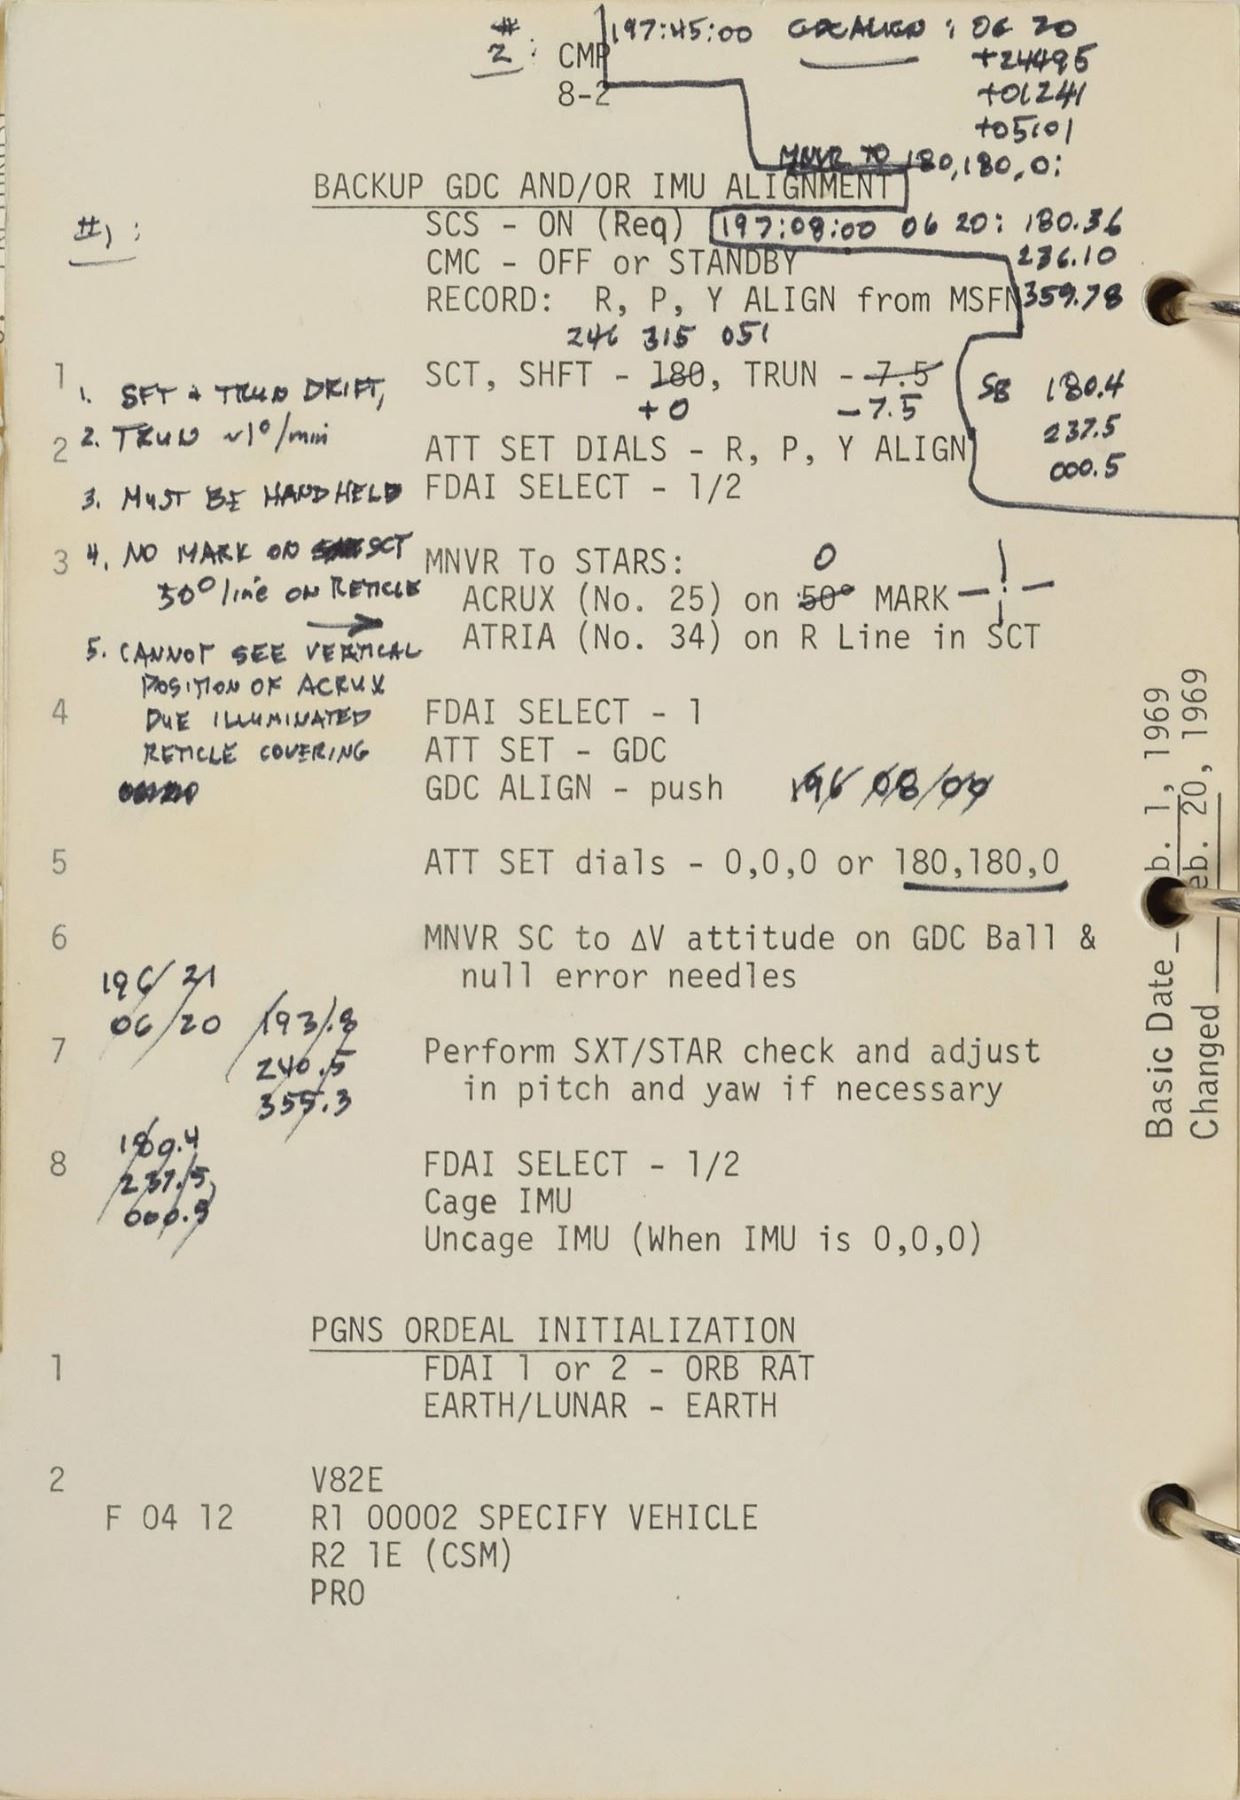 # 2: CMP 197:45:00 GDC ALIGN : 06 20
8-2 +24495
+01241
+05101
MNVR TO 180,180,0:
BACKUP GDC AND/OR IMU ALIGNMENT
#1: SCS - ON (Req) 197:08:00 06 20: 180.36
CMC - OFF or STANDBY 236.10
RECORD: R, P, Y ALIGN from MSFN 359.78
246 315 051
1 SCT, SHFT - 180, TRUN - 7.5
+0 -7.5
SB 180.4
237.5
000.5
1. SFT & TRUN DRIFT,
2. TRUN ~1°/min
2 ATT SET DIALS - R, P, Y ALIGN
3. MUST BE HANDHELD FDAI SELECT - 1/2
3 4. NO MARK ON SCT MNVR To STARS: 0
50° line ON RETICLE ACRUX (No. 25) on 50° MARK
5. CANNOT SEE VERTICAL ATRIA (No. 34) on R Line in SCT
POSITION OF ACRUX
DUE ILLUMINATED
RETICLE COVERING
4 FDAI SELECT - 1
ATT SET - GDC
GDC ALIGN - push 196 08/00
5 ATT SET dials - 0,0,0 or 180,180,0
6 MNVR SC to ΔV attitude on GDC Ball &
null error needles
196/21
06/20 193.8
240.5
355.3
7 Perform SXT/STAR check and adjust
in pitch and yaw if necessary
180.4
237.5
000.5
8 FDAI SELECT - 1/2
Cage IMU
Uncage IMU (When IMU is 0,0,0)
PGNS ORDEAL INITIALIZATION
1 FDAI 1 or 2 - ORB RAT
EARTH/LUNAR - EARTH
2 V82E
F 04 12 R1 00002 SPECIFY VEHICLE
R2 1E (CSM)
PRO
Basic Date b. 1, 1969
Changed eb. 20, 1969